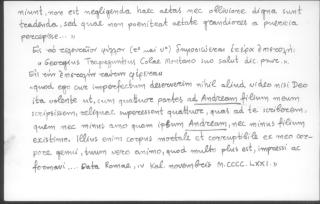 niunt, non est negligenda. haec aetas nec oblivione digna sunt
tradenda, sed quae non poeniteat aetate grandiores a pueritia
percepisse... »
Εἰς τὸ (1° καὶ 2°) δημοσιεύεται
« Georgius Trapezuntius Colae Montano suo salut dic pnre. ».
Εἰς τὴν ταύτην
« quod ego cur imperfectum deseruerim nihil aliud, video nisi Deo
ita volente ut, cum quattuor partes ad Andream filium meum
scripsissem, reliquae superessent quattuor, quas ad te scriberem,
quem nec minus amo quam ipsum Andream, nec minus filium
existimo. Illius enim corpus mortale et corruptibile ex meo cor-
pore genui, tuum vero animo, quod multo plus est, impressi ac
formavi .... Data Romae, IV Kal. novembris M.CCCC.LXXI. »